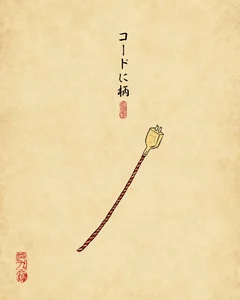 コードに柄